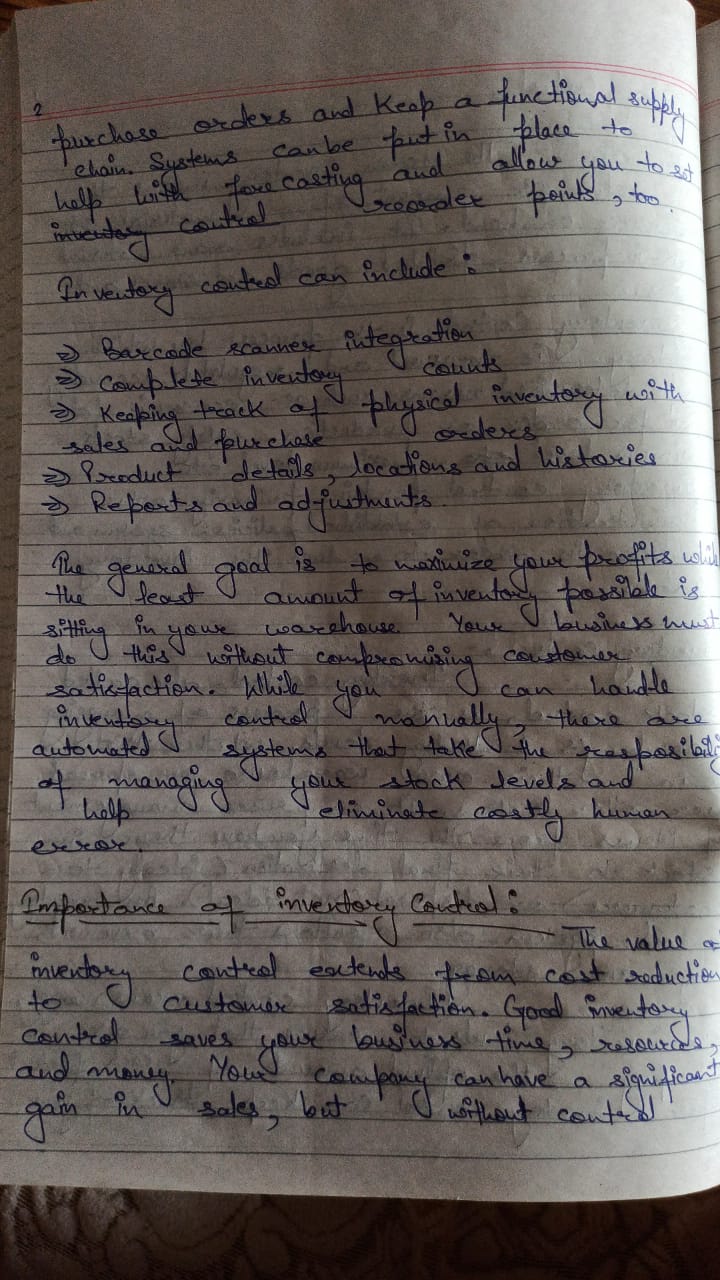 2
purchase orders and Keep a functional supply
chain. Systems can be put in place to
help with forecasting and allow you to set
inventory control reorder points, too.
Inventory control can include :
⇒ Barcode scanner integration
⇒ Complete inventory counts
⇒ Keeping track of physical inventory with
sales and purchase orders
⇒ Product details, locations and histories
⇒ Reports and adjustments.
The general goal is to maximize your profits whil
the least amount of inventory possible is
sitting in your warehouse. Your business must
do this without compromising coustomer
satisfaction. While you can handle
inventory control manually, there are
automated systems that take the resposibili
of managing your stock levels and
help eliminate costly human
error.
Importance of inventory Control :
The value o
inventory control extends from cost reduction
to customer satisfaction. Good inventory
control saves your business time, resources,
and money. Your company can have a significant
gain in sales, but without control